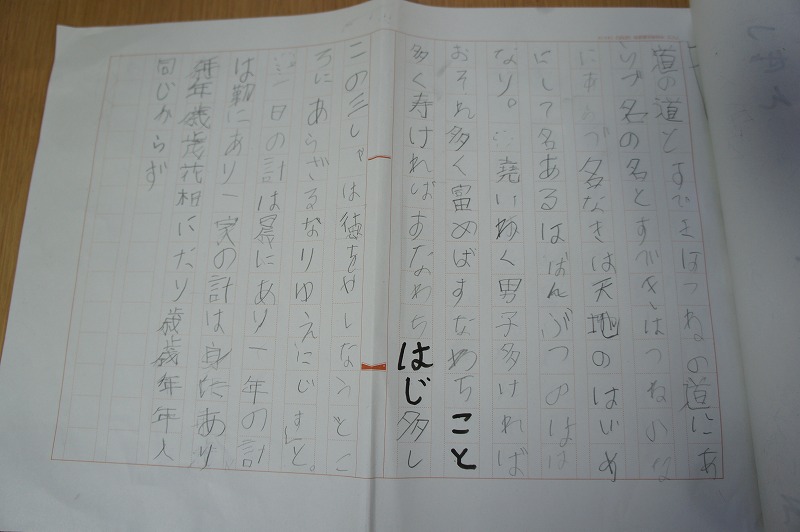 道の道とすべきはつねの道にあ
らず名の名とすべきはつねの名
にあらず名なきは天地のはじめ
にして名あるはばんぶつのはは
なり。堯いわく男子多ければ
おそれ多く富めばすなわちこと
多く寿ければすなわちはじ多し
この三しゃは徳をやしなうとこ
ろにあらざるなりゆえにじすと。
一日の計は晨にあり一年の計
は勤にあり一家の計は身にあり
年年歳歳花相にたり歳歳年年人
同じからず